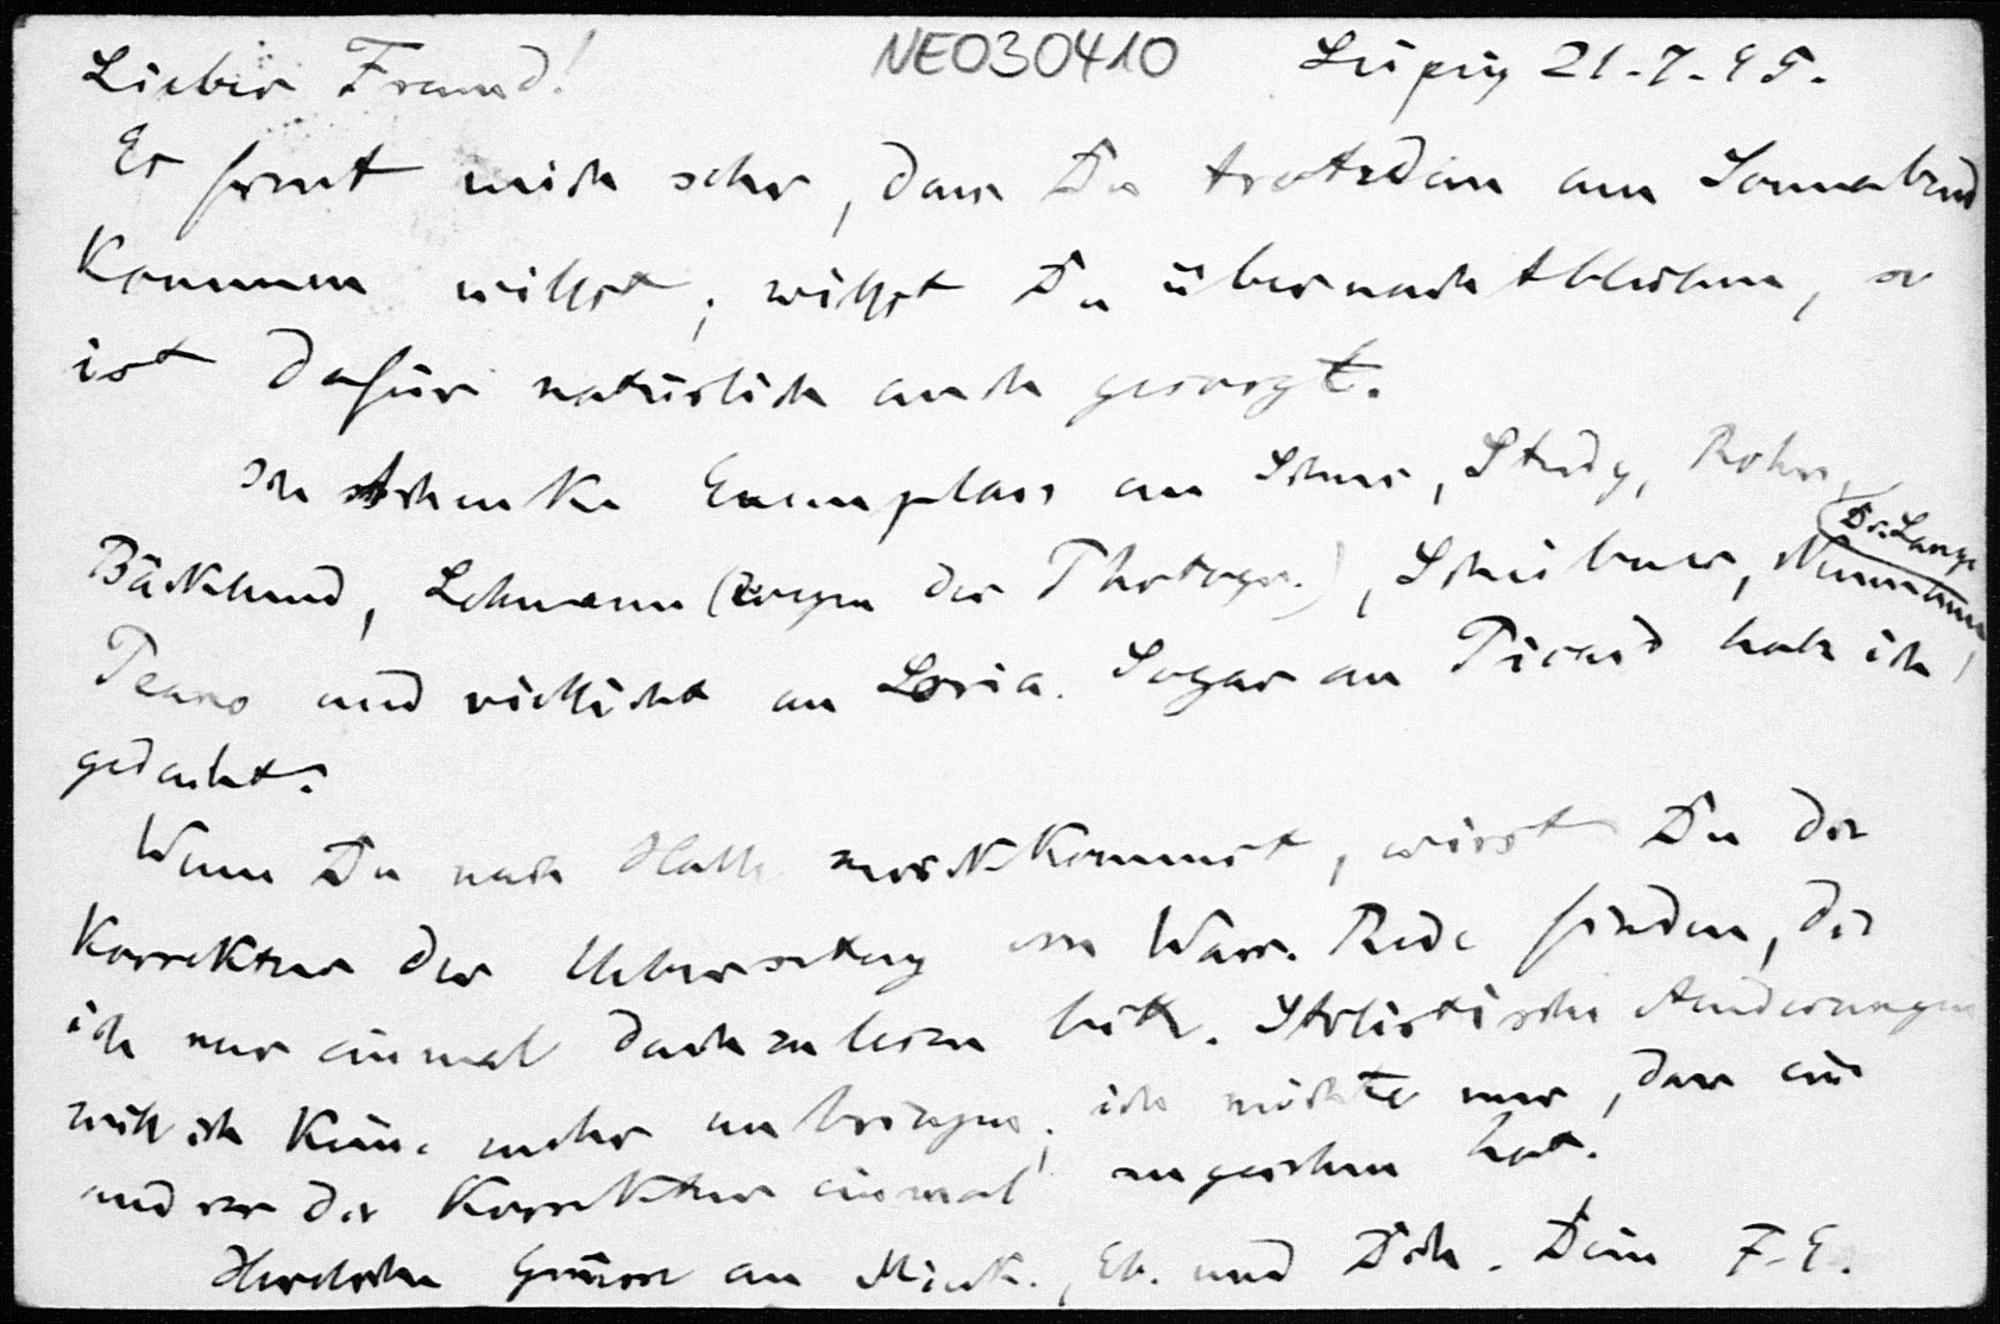 Lieber Freund! NE030410 Leipzig 21.7.95.
Es freut mich sehr, dass Du trotzdem am Sonnabend
kommen willst; willst Du übernachtbleiben, so
ist dafür natürlich auch gesorgt.
Ich schenke Exemplare an Scheer, Study, Rohn,
Dr. Lange
Bäcklund, Lehmann (wegen der Photogr.), Scheibner, Neumann,
Peano und vielleicht an Loria. Sogar an Picard habe ich
gedacht.
Wenn Du nach Halle zurückkommst, wirst Du die
Korrektur der Uebersetzung von Wass. Rede finden, die
ich nur einmal durchzulesen bitte. Stilistische Aenderungen
will ich keine mehr anbringen; ich möchte nur, dass ein
anderer die Korrektur einmal angesehen hat.
Herzliche Grüsse an Wick., Eb. und Dich. Dein F. E.